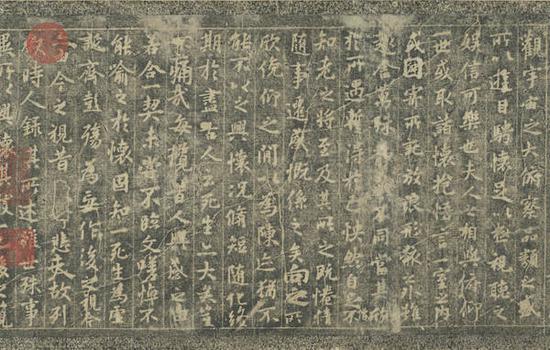 觀宇宙之大俯察品類之盛
所以遊目騁懷足以極視聽之
娛信可樂也夫人之相與俯仰
一世或取諸懷抱悟言一室之內
或因寄所託放浪形骸之外雖
趣舍萬殊不同當其欣
於所遇暫得於己快然自足不
知老之將至及其所之既惓情
隨事遷感慨係之矣向之所
欣俛仰之間以為陳迹猶不
能不以之興懷況脩短隨化終
期於盡古人云死生亦大矣豈
不痛哉每攬昔人興感之由
若合一契未嘗不臨文嗟悼不
能喻之於懷固知一死生為虛
誕齊彭殤為妄作後之視今
今之視昔悲夫故列
時人錄其所述雖世殊事
異所以興懷其致